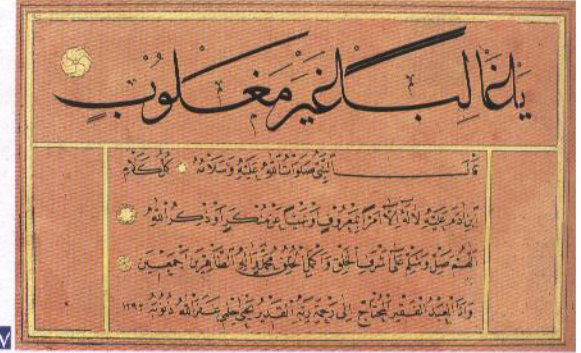 يا غالبا غير مغلوب
قال النبي صلوات الله عليه وسلامه كل كلام
ابن آدم عليه لا له إلا أمرا بمعروف أو نهيا عن منكر أو ذكر الله
اللهم صل وسلم على أشرف الخلق وأكمل الخلق محمد وآله الطاهرين أجمعين
وأنا العبد الفقير المحتاج إلى رحمة ربه القدير يحيى حلمي غفر الله ذنوبه ١٢٩٢
٧